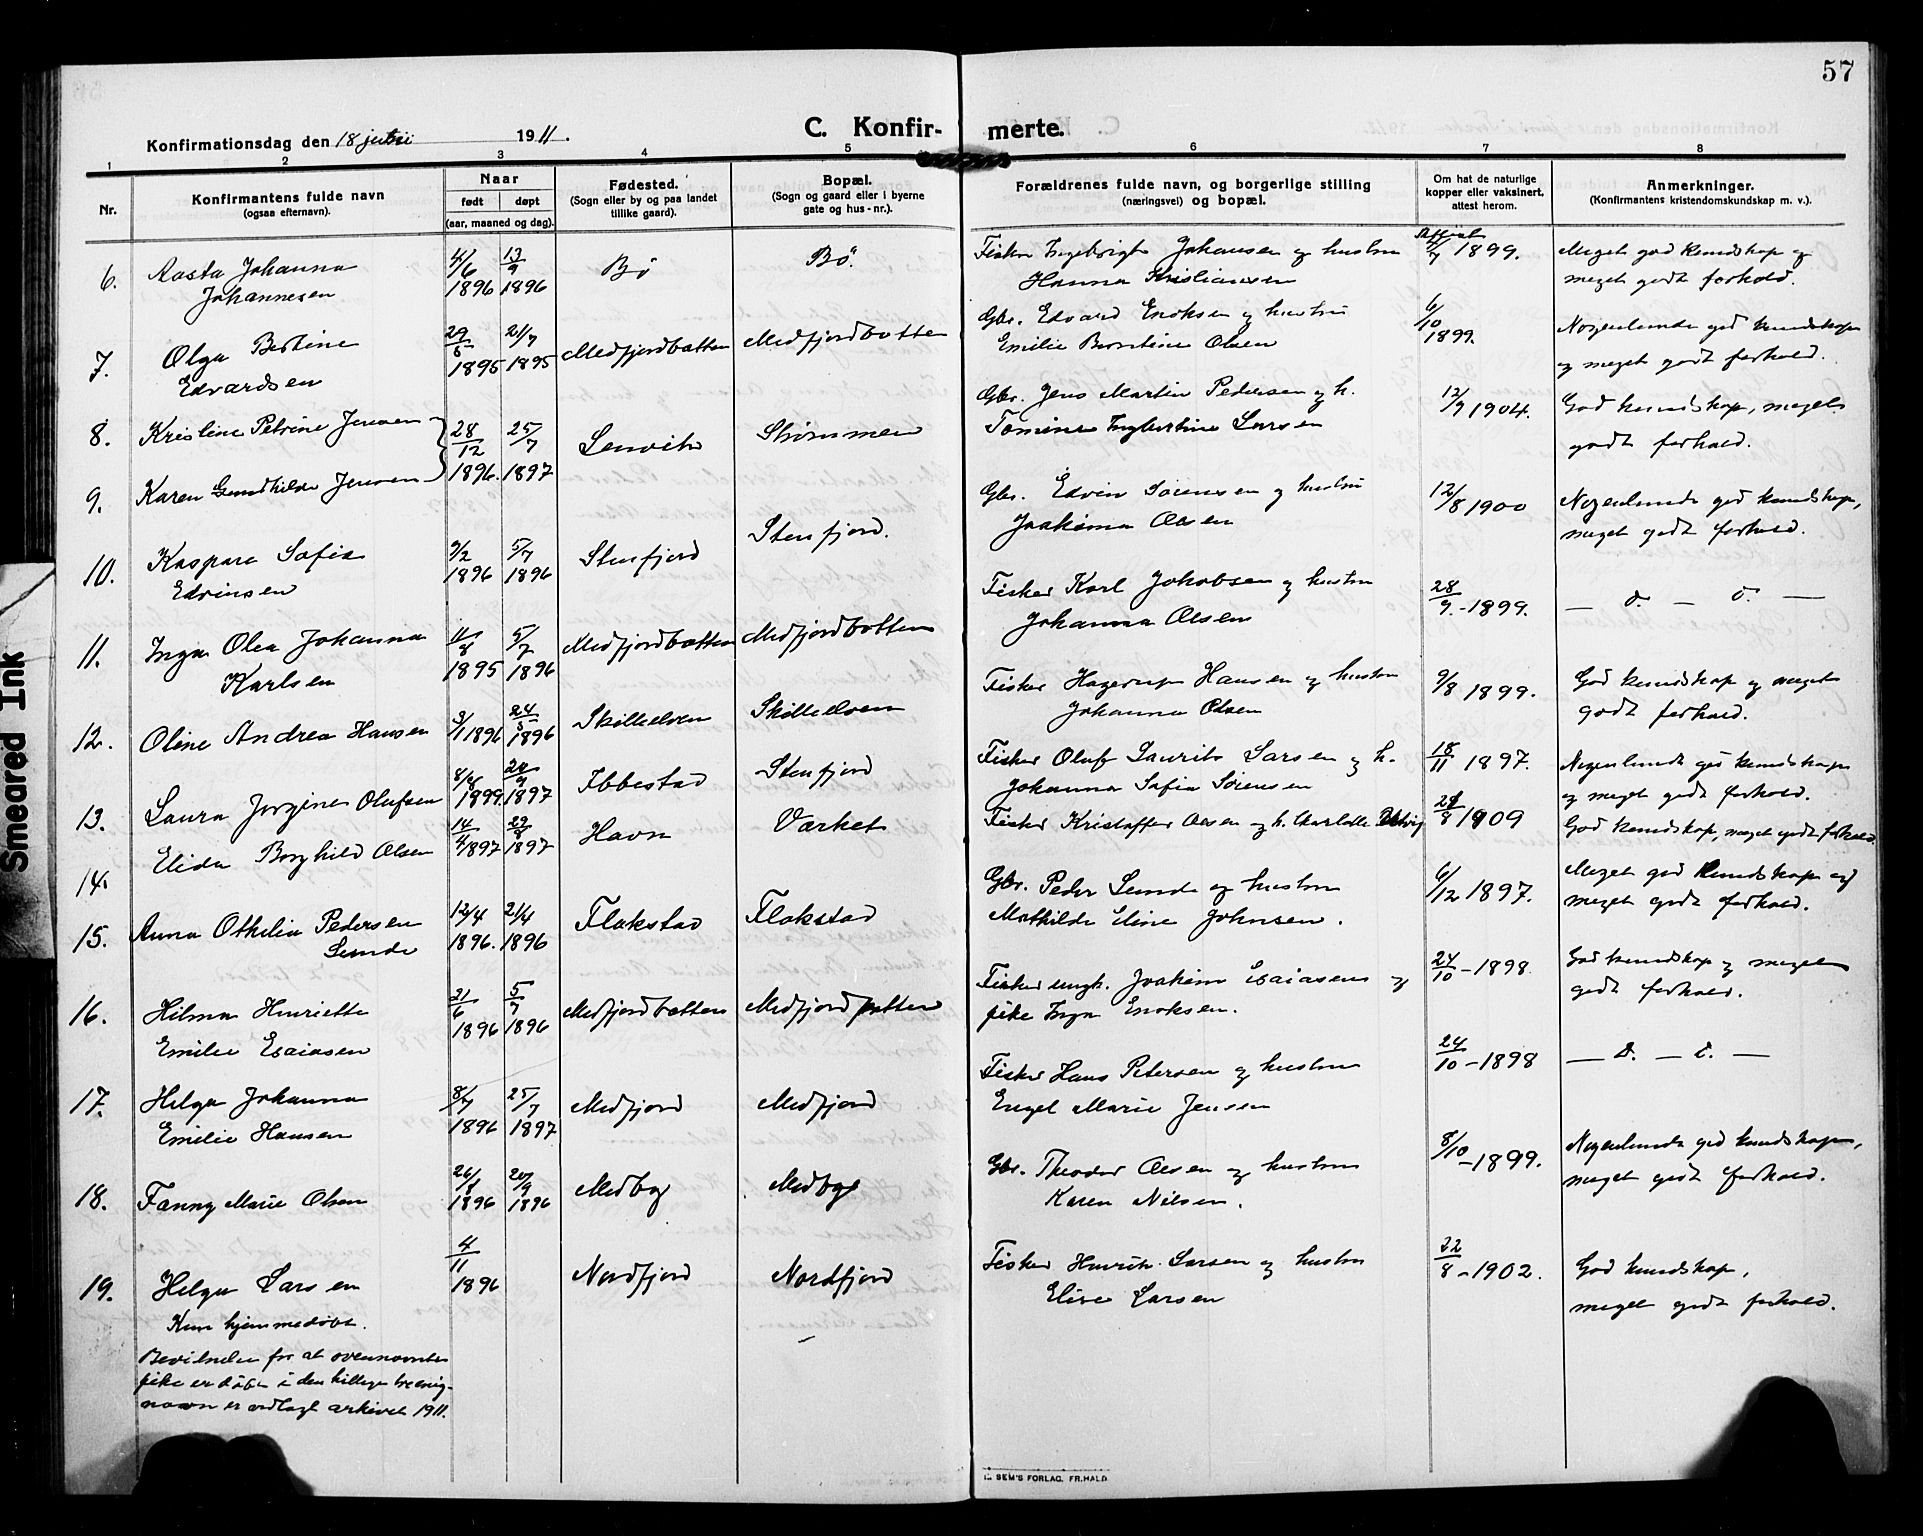 57
C. Konfirmerte.
Konfirmationsdag den 18 juni 1911.
1 2 3 4 5 6 7 8
Nr.
Konfirmantens fulde navn
(ogsaa efternavn).
Naar
født døpt
(aar, maaned og dag).
Fødested.
(Sogn eller by og paa landet
tillike gaard).
Bopæl.
(Sogn og gaard eller i byerne
gate og hus-nr.).
Forældrenes fulde navn, og borgerlige stilling
(næringsvei) og bopæl.
Om hat de naturlige
kopper eller vaksinert,
attest herom.
Anmerkninger.
(Konfirmantens kristendomskundskap m. v.).
6. Aasta Johanna
Johannesen
4/6 1896 13/9 1896
Bø Bø.
Fisker Ingebrigt Johansen og hustru
Hanna Kristiansen
Attest
1899.
Meget god kundskap og
meget godt forhold.
7. Olga Bertine
Edvardsen
29/6 1895 21/7 1895
Medfjordbotten Medfjordbotten
Gbr. Edvard Enoksen og hustru
Emilie Berntine Olsen
6/10 1899.
Nogenlunde god kundskap
og meget godt forhold.
8. Kristine Petrine Jensen
9. Karen Gundhilde Jensen
28/12 1896. 25/7 1897
Lenvik Strømmen
Gbr. Jens Martin Pedersen og h.
Tomine Ingbertine Larsen
12/9 1904.
God kundskap, meget
godt forhold.
10. Kaspara Sofie
Edvinsen
9/2 1896 5/7 1896
Stenfjord Stenfjord.
Gbr. Edvin Sørensen og hustru
Joakima Olsen
12/8 1900
Nogenlunde god kundskap,
meget godt forhold.
11. Inga Olea Johanna
Karlsen
11/8 1895 5/7 1896
Medfjordbotten Medfjordbotten
Fisker Karl Jakobsen og hustru
Johanna Olsen
28/9. - 1899.
— d. — d. —
12. Oline Andrea Hansen
3/1 1896 24/5 1896
Skilleelven Skilleelven
Fisker Hagerup Hansen og hustru
Johanna Olsen
9/8 1899.
God kundskap og meget
godt forhold.
13. Laura Jorgine Olufsen
1899. 1897
Ibbestad Stenfjord
Fisker Oluf Laurits Larsen og h.
Johanna Sofie Sørensen
18/11 1897.
Nogenlunde god kundskap
og meget godt forhold.
14. Elida Borghild Olsen
14/4 1897 29/8 1897
Havn Værket
Fisker Kristoffer Olsen og h. Charlotte
28/8 1909
God kundskap, meget godt forhold.
15. Anna Othilia Pedersen
Sunde
12/4 1896. 21/4 1896
Flakstad Flakstad
Gbr. Peder Sunde og hustru
Mathilde Eline Johnsen.
6/12 1897.
Meget god kundskap og
meget godt forhold.
16. Hilma Henriette
Emilie Esaiasen
21/6 1896 5/7 1896
Medfjordbotten Medfjordbotten
Fisker ungk. Joakim Esaiasen og
pike Inga Enoksen.
24/10 - 1898
God kundskap og meget
godt forhold.
17. Helga Johanna
Emilie Hansen
8/7 1896 25/7 1897
Medfjord Medfjord
Fisker Hans Petersen og hustru
Engel Marie Jensen
24/10 - 1898
— d. — d. —
18. Fanny Marie Olsen
26/8 1896 20/9 1896
Medby Medby
Gbr. Theodor Olsen og hustru
Karen Nilsen.
8/10 - 1899.
Nogenlunde god kundskap,
meget godt forhold.
19. Helga Larsen
4/11 1896
Nordfjord Nordfjord
Fisker Henrik Larsen og hustru
Elise Larsen
22/8 - 1902.
God kundskap,
meget godt forhold.
Kun hjemmedøbt.
Bevidnelse for at ovennevnte
pike er døbt i den hellige treenig-
navn er vedlagt arkivet 1911.
SEM'S FORLAG, FR.HALD
Smeared Ink